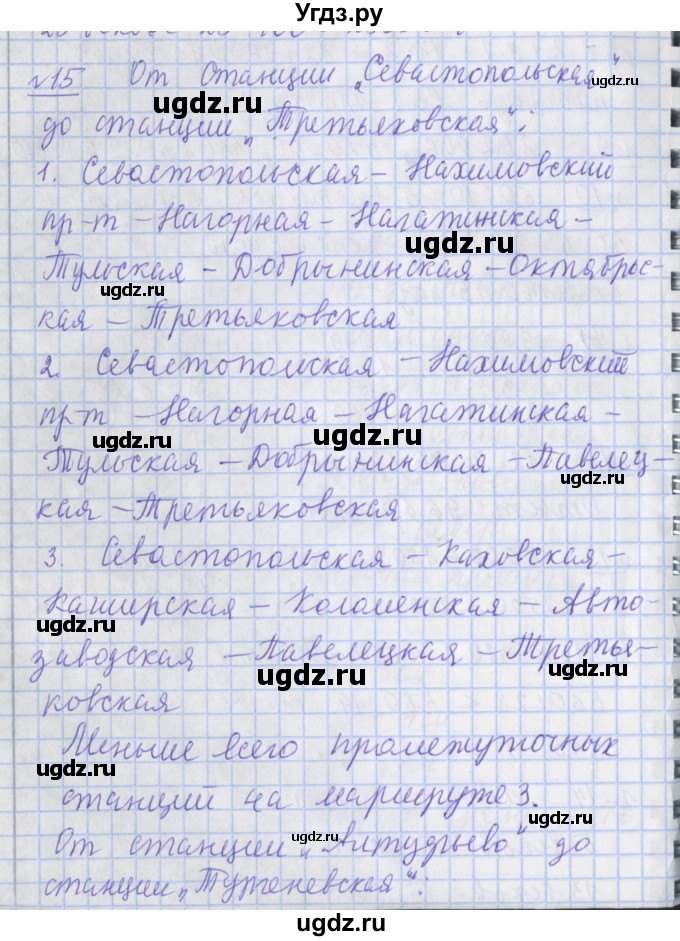 Угдз.ру
№15 От станции „Севастопольская"
до станции „Третьяковская":
1. Севастопольская – Нахимовский
пр-т – Нагорная – Нагатинская –
Тульская – Добрынинская – Октябрьс-
кая – Третьяковская
2. Севастопольская – Нахимовский
пр-т – Нагорная – Нагатинская –
Тульская – Добрынинская – Павелец-
кая – Третьяковская
3. Севастопольская – Каховская –
Каширская – Коломенская – Авто-
заводская – Павелецкая – Третья-
ковская
Меньше всего промежуточных
станций на маршруте 3.
От станции „Алтуфьево" до
станции „Тургеневская":